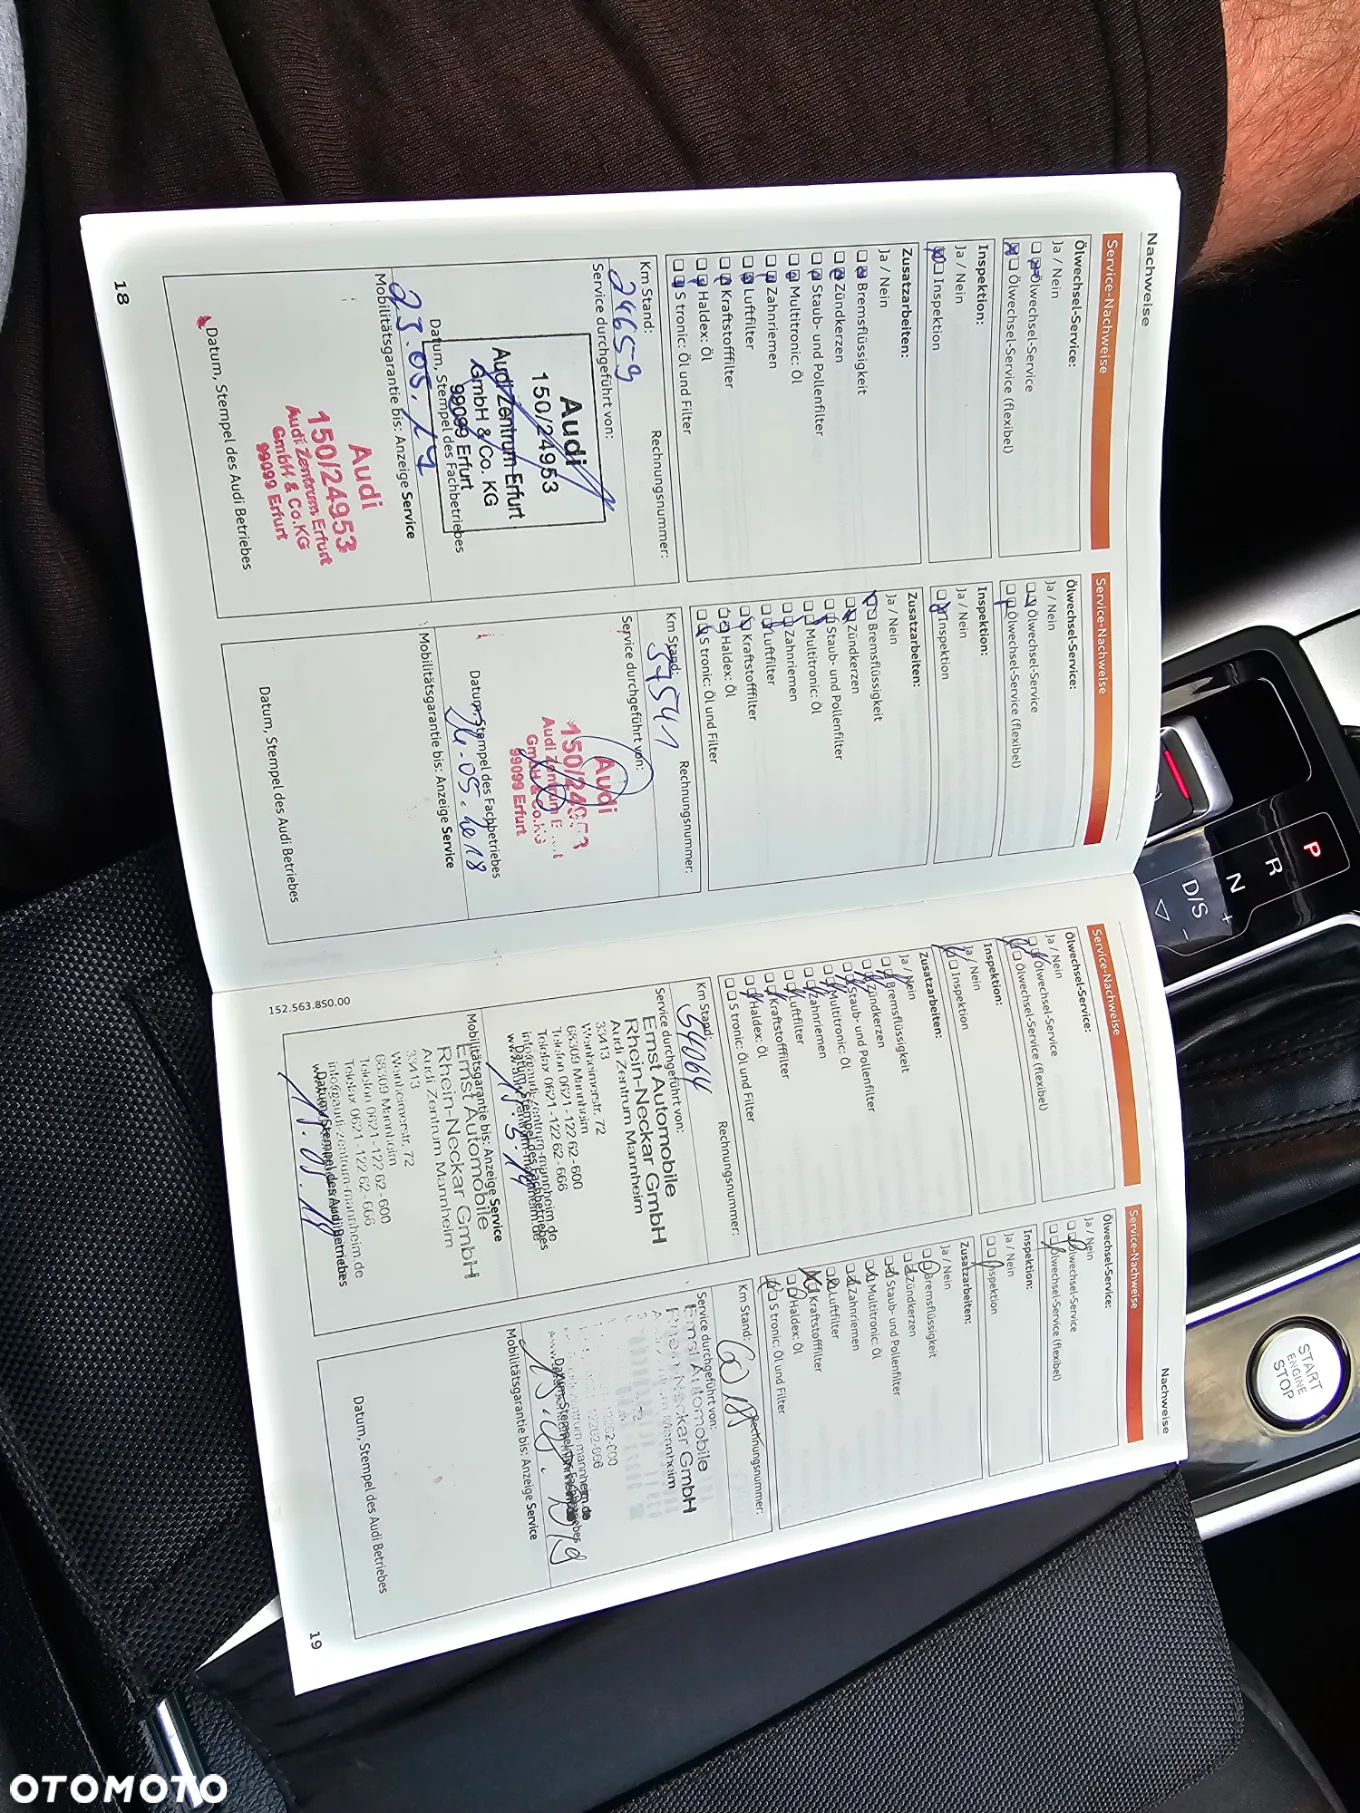 Nachweise
Service-Nachweise
Ölwechsel-Service:
Ja / Nein
Ölwechsel-Service
Ölwechsel-Service (flexibel)
Inspektion:
Ja / Nein
Inspektion
Zusatzarbeiten:
Ja / Nein
Bremsflüssigkeit
Zündkerzen
Staub- und Pollenfilter
Multitronic: Öl
Zahnriemen
Luftfilter
Kraftstofffilter
Haldex: Öl
S tronic: Öl und Filter
Km Stand: Rechnungsnummer:
24659
Service durchgeführt von:
Audi
150/24953
Audi Zentrum Erfurt
GmbH & Co. KG
99099 Erfurt
Datum, Stempel des Fachbetriebes
23.05.17
Mobilitätsgarantie bis: Anzeige Service
Audi
150/24953
Audi Zentrum Erfurt
GmbH & Co.KG
99099 Erfurt
Datum, Stempel des Audi Betriebes
18
Service-Nachweise
Ölwechsel-Service:
Ja / Nein
Ölwechsel-Service
Ölwechsel-Service (flexibel)
Inspektion:
Ja / Nein
Inspektion
Zusatzarbeiten:
Ja / Nein
Bremsflüssigkeit
Zündkerzen
Staub- und Pollenfilter
Multitronic: Öl
Zahnriemen
Luftfilter
Kraftstofffilter
Haldex: Öl
S tronic: Öl und Filter
Km Stand: Rechnungsnummer:
Service durchgeführt von:
Audi
150/24953
Audi Zentrum
GmbH & Co.KG
99099 Erfurt
Datum, Stempel des Fachbetriebes
24.05.2018
Mobilitätsgarantie bis: Anzeige Service
Datum, Stempel des Audi Betriebes
Service-Nachweise
Ölwechsel-Service:
Ja / Nein
Ölwechsel-Service
Ölwechsel-Service (flexibel)
Inspektion:
Ja / Nein
Inspektion
Zusatzarbeiten:
Ja / Nein
Bremsflüssigkeit
Zündkerzen
Staub- und Pollenfilter
Multitronic: Öl
Zahnriemen
Luftfilter
Kraftstofffilter
Haldex: Öl
S tronic: Öl und Filter
Km Stand: Rechnungsnummer:
54064
Service durchgeführt von:
Ernst Automobile
Rhein-Neckar GmbH
Audi Zentrum Mannheim
33413
Wanheimerstr. 72
68309 Mannheim
Telefon 0621-122 62-600
Telefax 0621-122 62-666
info@audi-zentrum-mannheim.de
Datum, Stempel des Fachbetriebes
Mobilitätsgarantie bis: Anzeige Service
Ernst Automobile
Rhein-Neckar GmbH
Audi Zentrum Mannheim
33413
Wanheimerstr. 72
68309 Mannheim
Telefon 0621-122 62-600
Telefax 0621-122 62-666
info@audi-zentrum-mannheim.de
Datum, Stempel des Audi Betriebes
152.563.850.00
Nachweise
Service-Nachweise
Ölwechsel-Service:
Ja / Nein
Ölwechsel-Service
Ölwechsel-Service (flexibel)
Inspektion:
Ja / Nein
Inspektion
Zusatzarbeiten:
Ja / Nein
Bremsflüssigkeit
Zündkerzen
Staub- und Pollenfilter
Multitronic: Öl
Zahnriemen
Luftfilter
Kraftstofffilter
Haldex: Öl
S tronic: Öl und Filter
Km Stand: Rechnungsnummer:
Service durchgeführt von:
Ernst Automobile
Rhein-Neckar GmbH
Mannheim
Datum, Stempel des Fachbetriebes
Mobilitätsgarantie bis: Anzeige Service
Datum, Stempel des Audi Betriebes
19
P
R
N
D/S
+
-
START
ENGINE
STOP
OTOMOTO